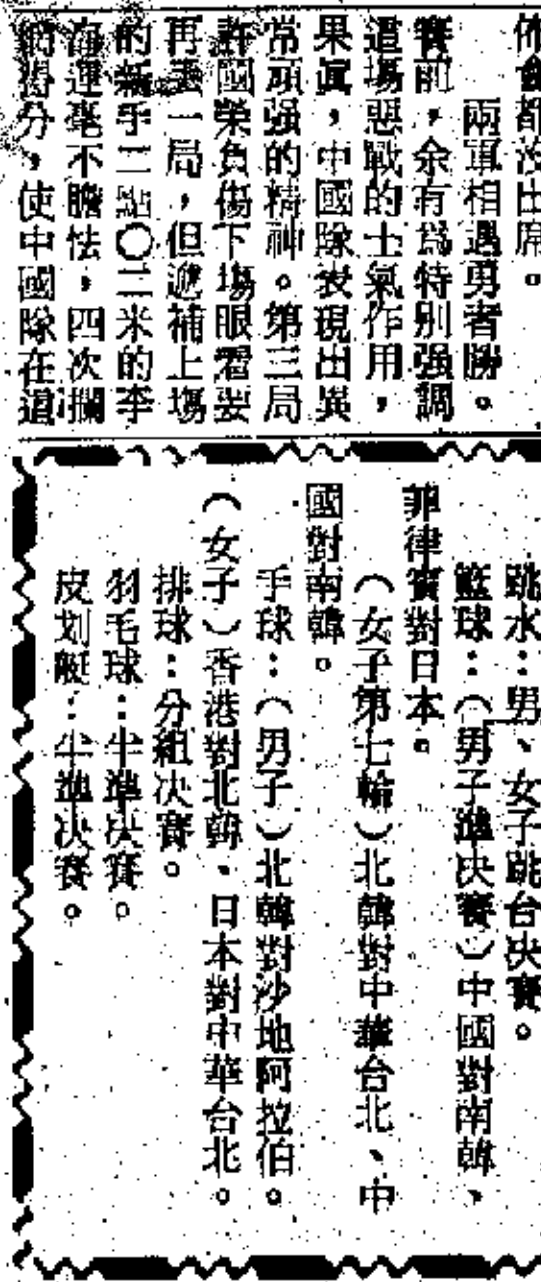 佈會都沒出席。
兩軍相遇勇者勝。
賽前，余有爲特別强調
這場惡戰的士氣作用，
果眞，中國隊表現出異
常頑强的精神。第三局
許國榮負傷下場眼看要
再丟一局，但遞補上場
的新手二點〇二米的李
海運毫不膽怯，四次攔
網得分，使中國隊在這
跳水：男、女子跳台決賽。
籃球：（男子準決賽）中國對南韓、
菲律賓對日本。
（女子第七輪）北韓對中華台北、中
國對南韓。
手球：（男子）北韓對沙地阿拉伯。
（女子）香港對北韓、日本對中華台北。
排球：分組決賽。
羽毛球：半準決賽。
皮划艇：半準決賽。